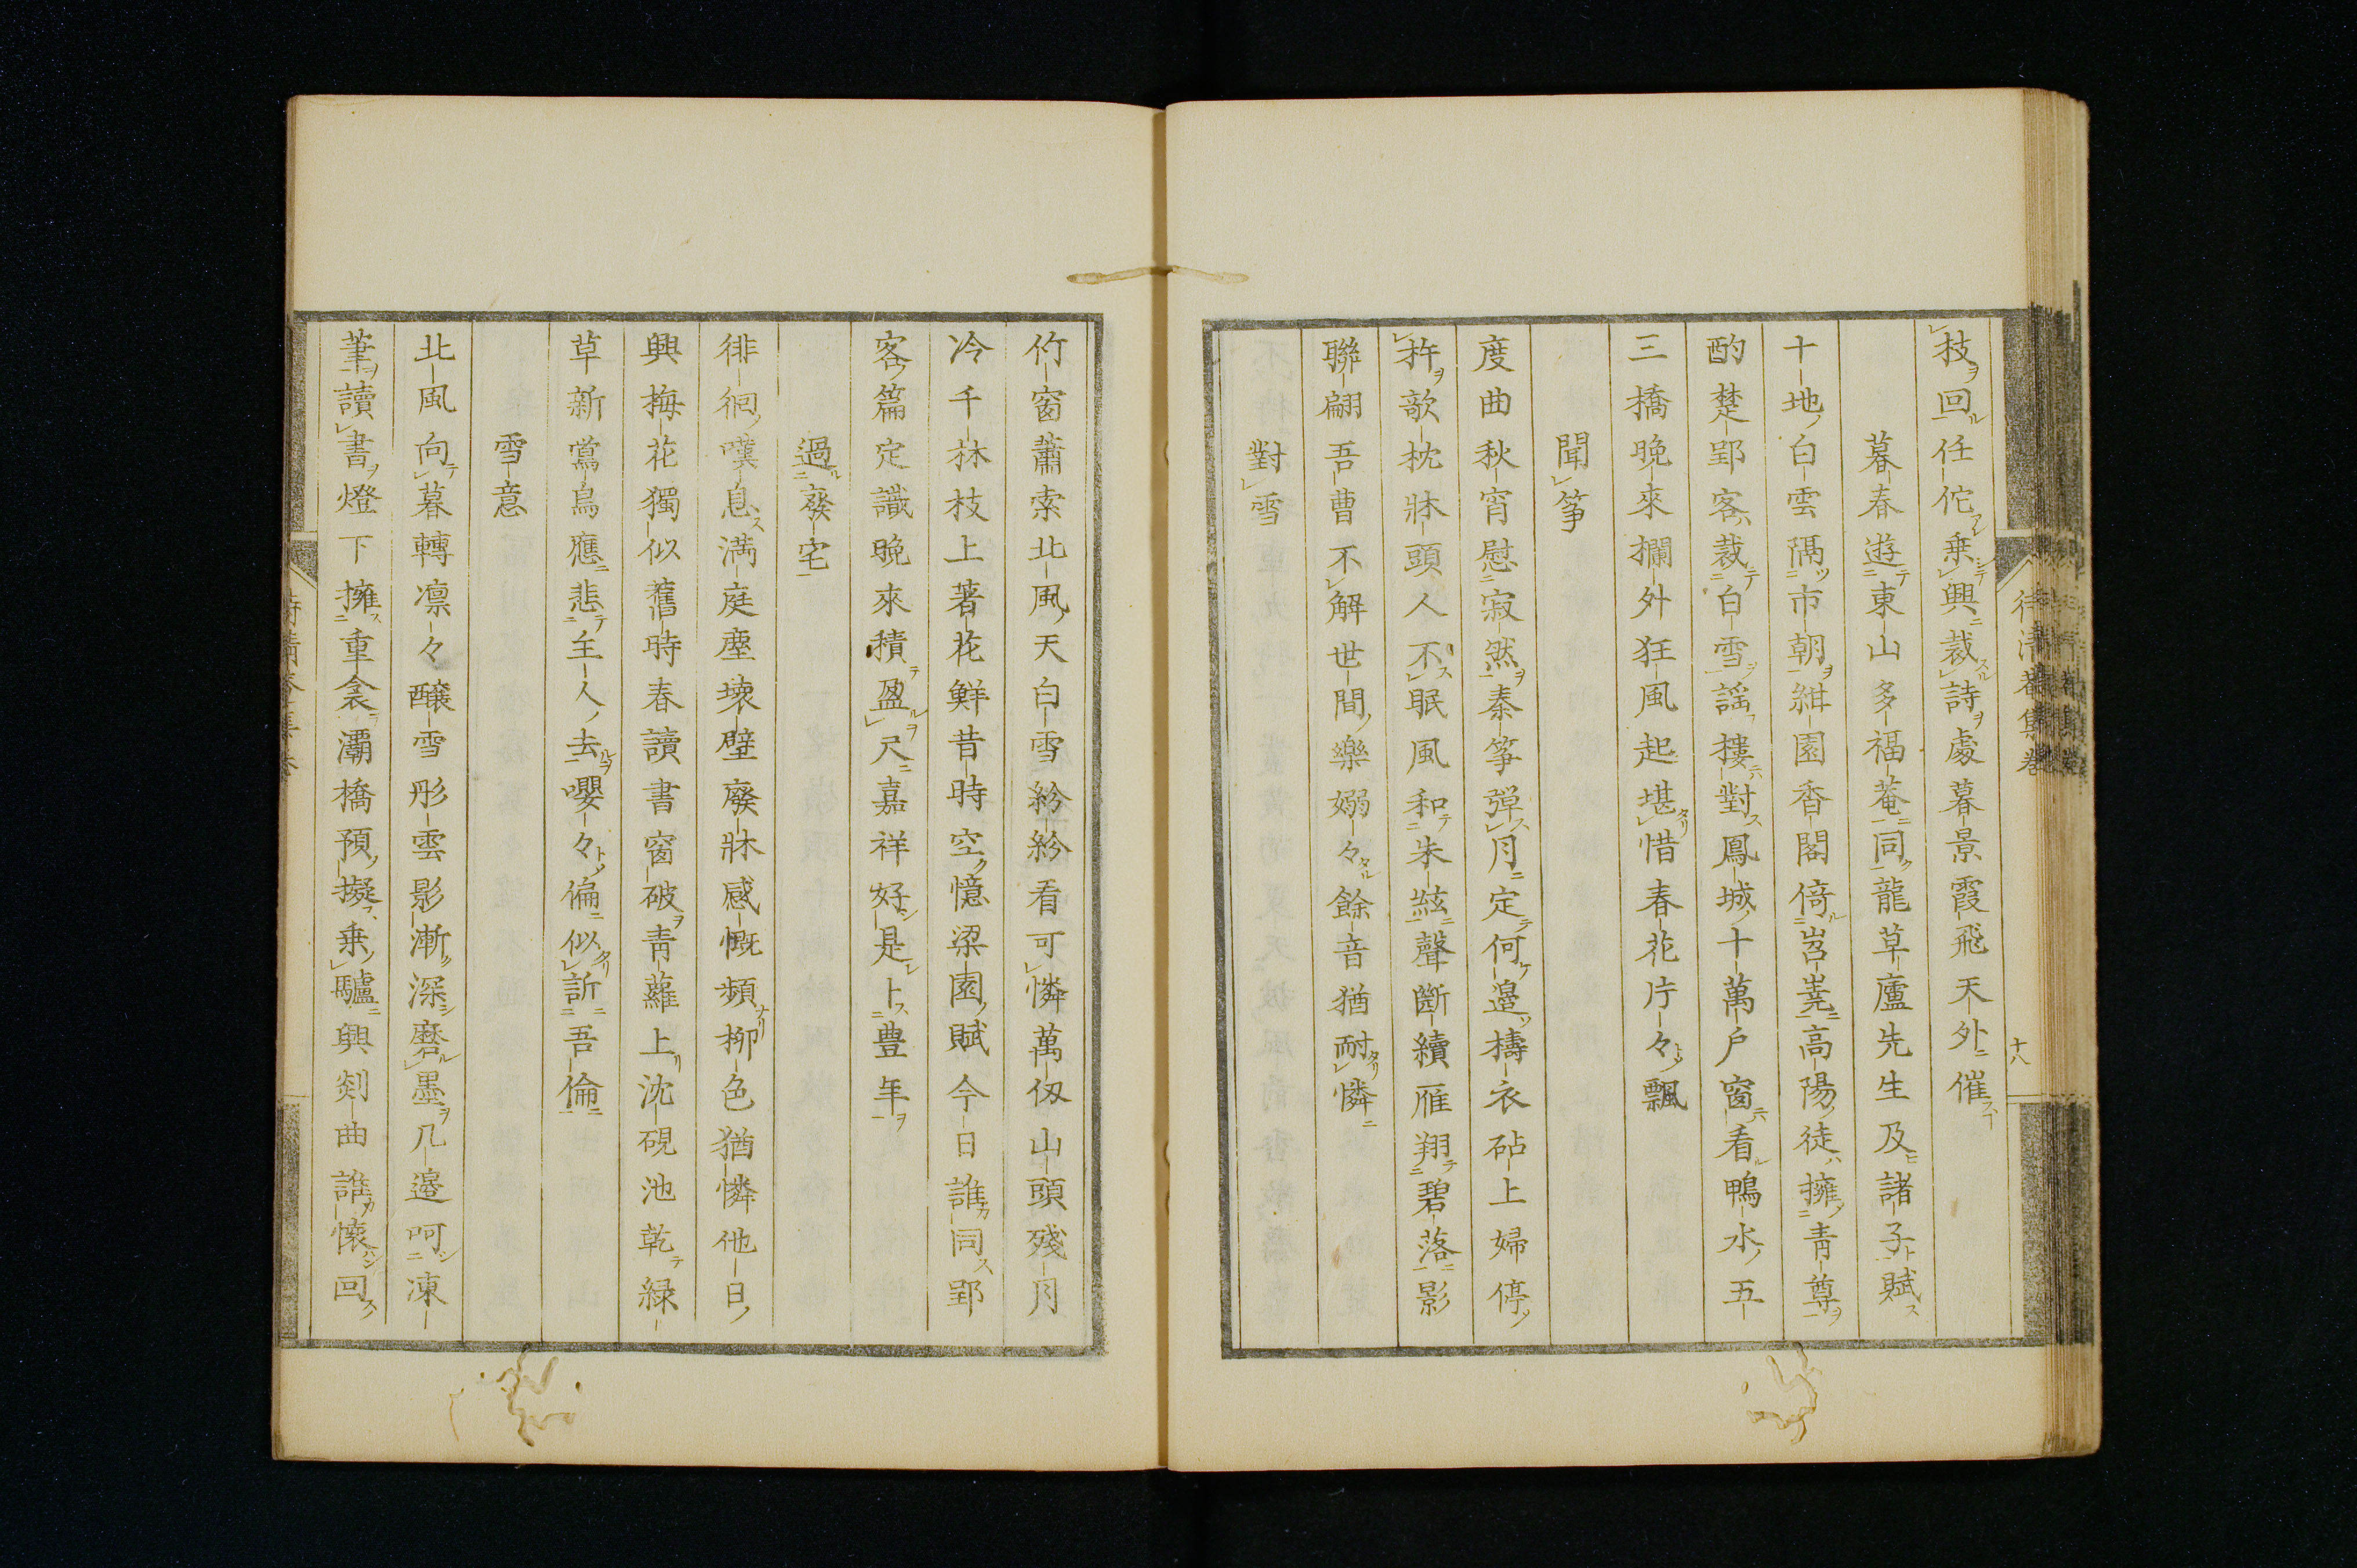 技回任佗乗興裁詩處暮景霞飛天外催
暮春遊東山多福菴同龍草廬先生及諸子賦
十地白雲隔市朝紺園香閣倚岧嶤高陽徒擁青尊
酌楚郢客裁白雪謡摟對鳳城十萬戸窗看鴨水五
三橋晩來摑外狂風起堪惜春花片々飄
聞箏
度曲秋宵慰寂然秦箏弾月定何邉擣衣砧上婦停
杵歌枕牀頭人不眠風和朱絃聲斷續雁翔碧落影
聯翩吾曹不解世間樂嫋々餘音猶耐憐
對雪
十八
竹窗蕭索北風天白雪紛紛看可憐萬仭山頭殘月
冷千林枝上著花鮮昔時空憶梁園賦今日誰同郢
客篇定識晩來積盈尺嘉祥好是卜豊年
過廢宅
徘徊嘆息満庭塵壊壁廢牀感慨頻柳色猶憐他日
興梅花獨似舊時春讀書窗破青蘿上沈硯池乾緑
草新鶯鳥應悲主人去嚶々偏似訢吾倫
雪意
北風向暮轉凛々醸雪彤雲影漸深磨墨几邉呵凍
筆讀書燈下擁重衾灞橋預擬乗驢興剡曲誰懐回